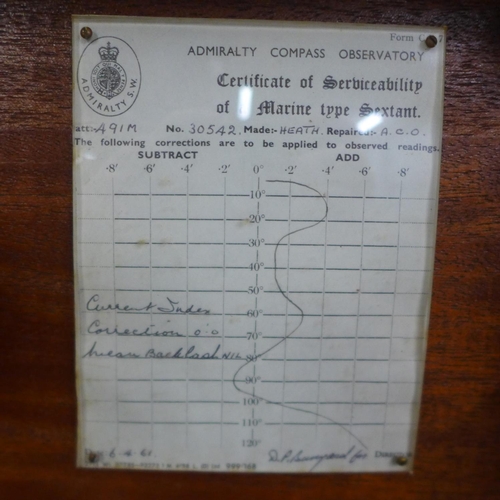 Form
ADMIRALTY COMPASS OBSERVATORY
Certificate of Serviceability
of Marine type Sextant.
ADMIRALTY S.W.
Patt:- A91M No. 30542. Made:- HEATH. Repaired:- A.C.O.
The following corrections are to be applied to observed readings.
SUBTRACT ADD
·8' ·6' ·4' ·2' 0° ·2' ·4' ·6' ·8'
10°
20°
30°
40°
50°
Current Index
60°
Correction 0·0
70°
Mean Backlash NIL 80°
90°
100°
110°
120°